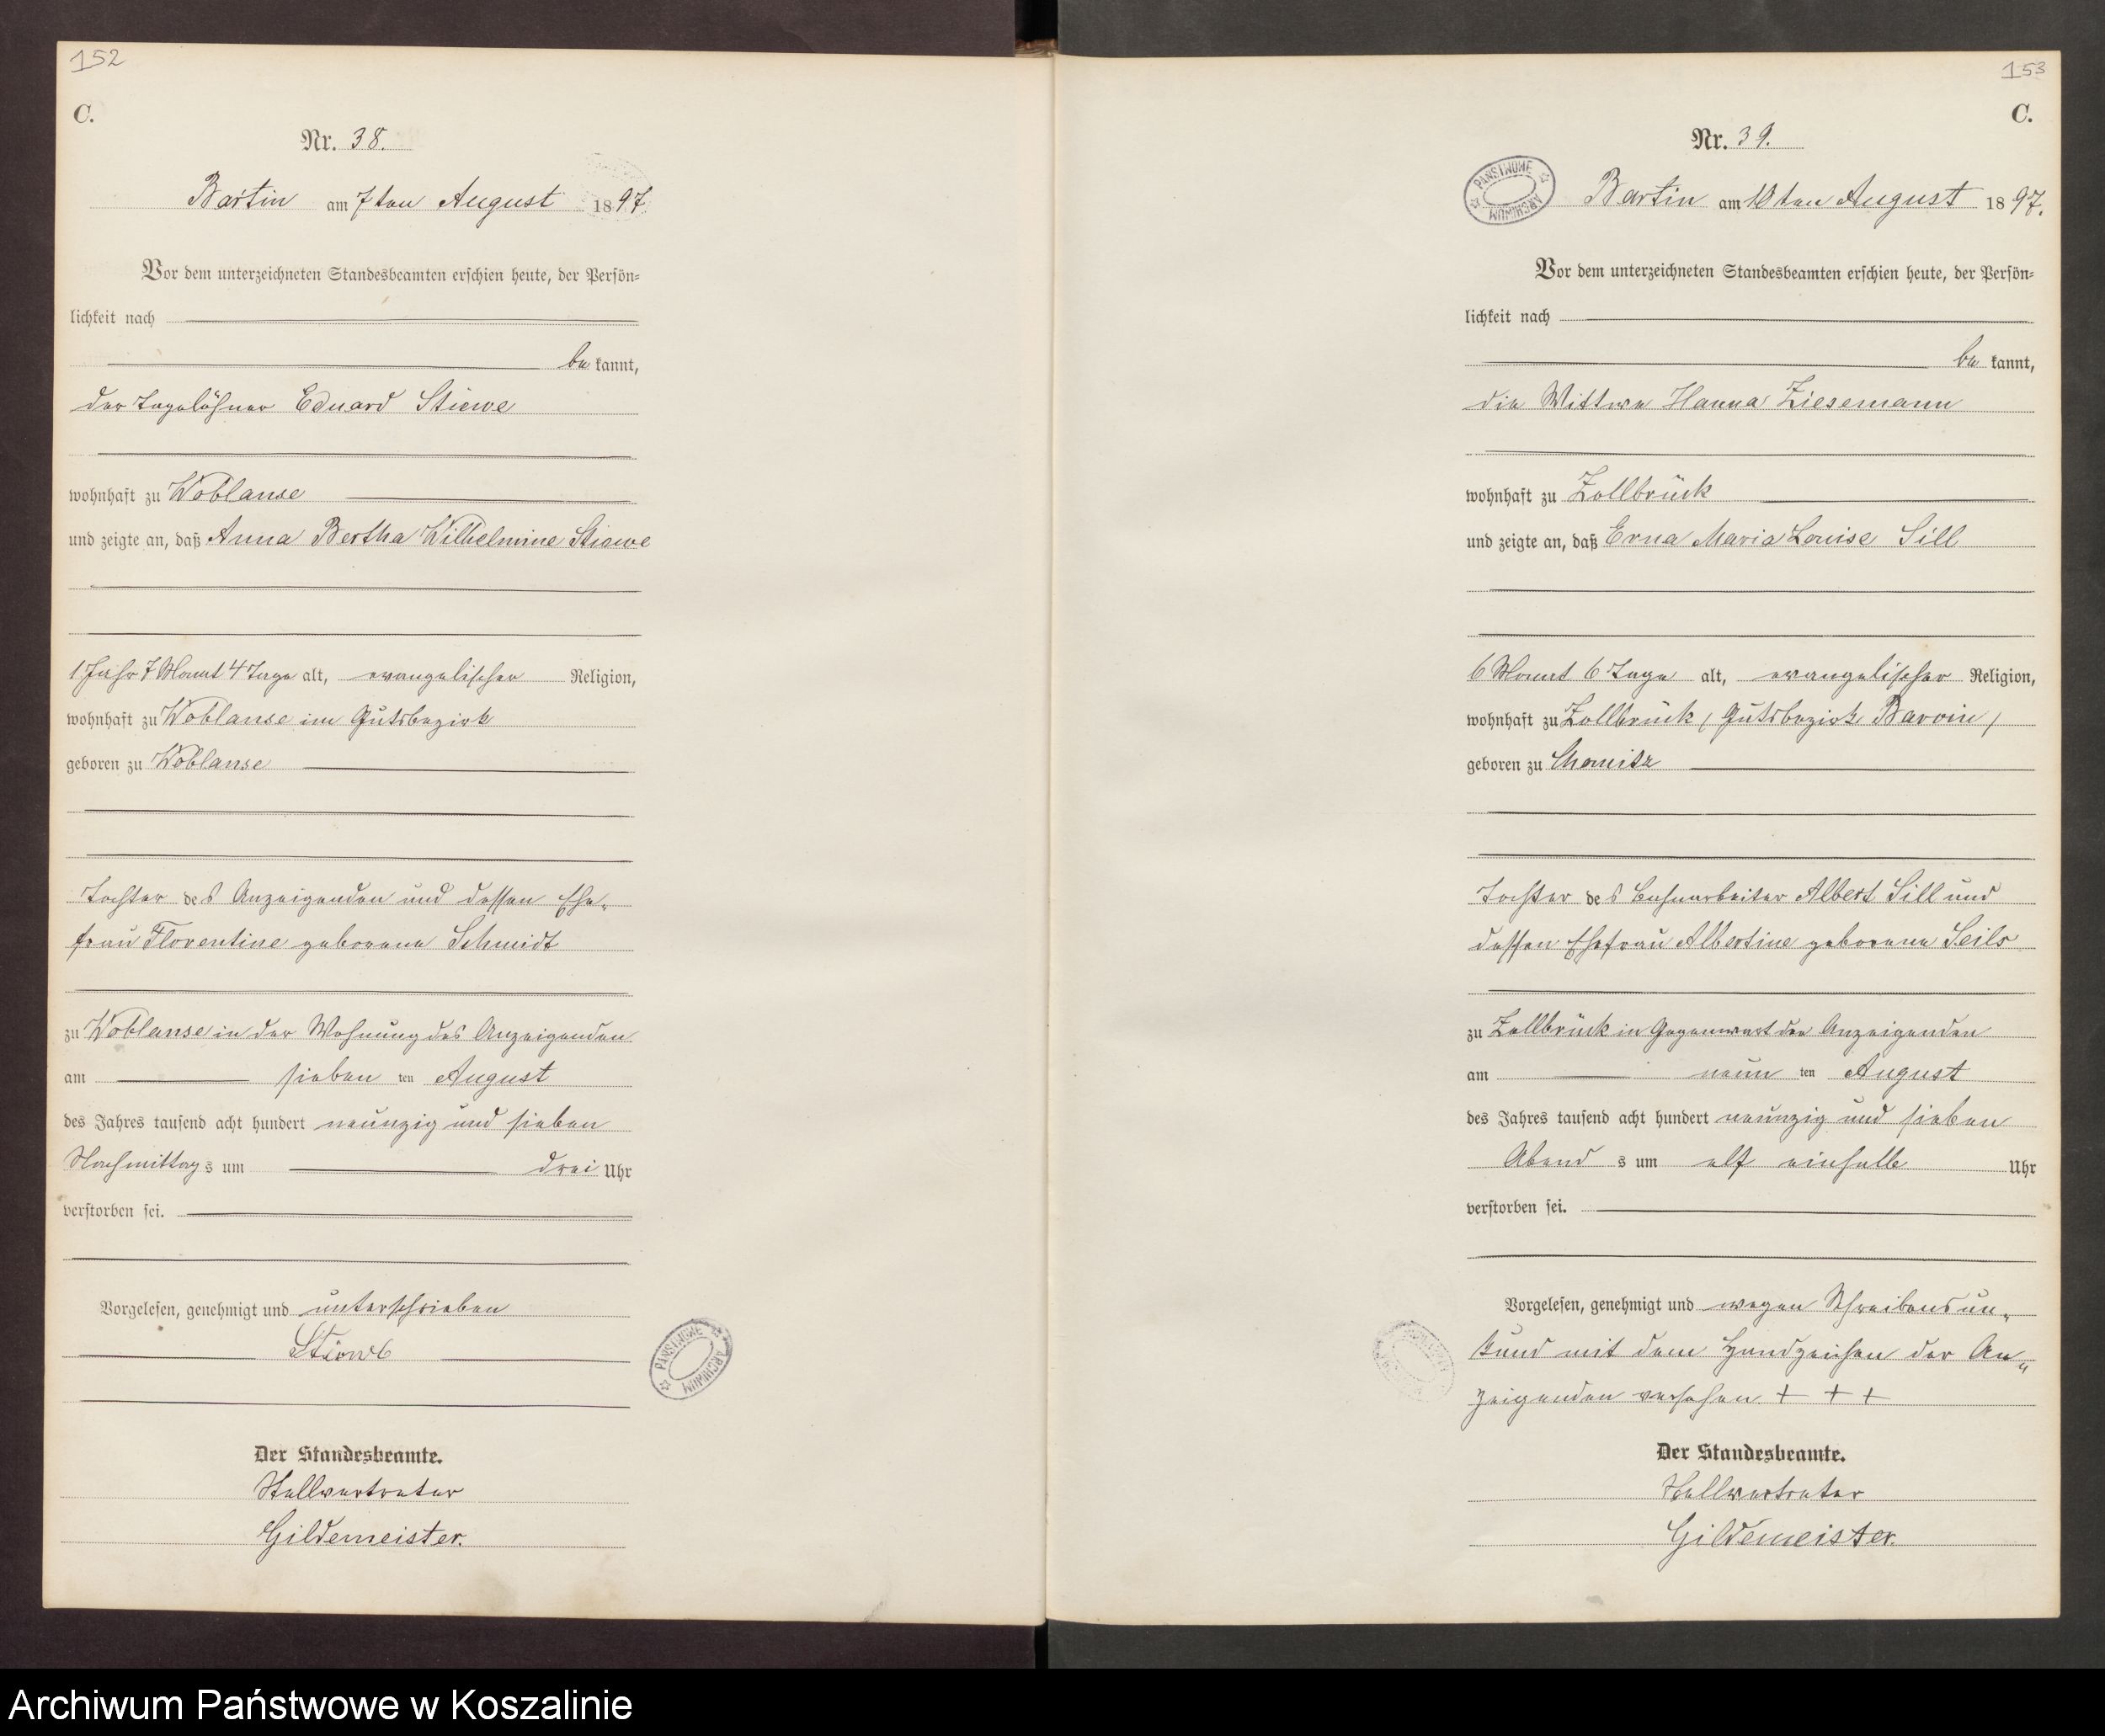 152
C.
Nr. 38.
Bartin am 7ten August 1897
Vor dem unterzeichneten Standesbeamten erschien heute, der Persön-
lichkeit nach
bekannt,
der Tagelöhner Eduard Stiewe
wohnhaft zu Woblanse
und zeigte an, daß Anna Bertha Wilhelmine Stiewe
1 Jahr 7 Monat 4 Tage alt, evangelischer Religion,
wohnhaft zu Woblanse im Gutsbezirk
geboren zu Woblanse
Tochter des Anzeigenden und dessen Ehe-
frau Florentine geborene Schmidt
zu Woblanse in der Wohnung des Anzeigenden
am sieben ten August
des Jahres tausend acht hundert neunzig und sieben
Nachmittags um drei Uhr
verstorben sei.
Vorgelesen, genehmigt und unterschrieben
Stiewe
Der Standesbeamte.
Stellvertreter
Gildemeister.
PAŃSTWOWE ARCHIWUM
153
C.
Nr. 39.
PAŃSTWOWE ARCHIWUM
Bartin am 10ten August 1897.
Vor dem unterzeichneten Standesbeamten erschien heute, der Persön-
lichkeit nach
bekannt,
die Wittwe Hanna Ziesemann
wohnhaft zu Zollbrück
und zeigte an, daß Erna Maria Louise Sill
6 Monat 6 Tage alt, evangelischer Religion,
wohnhaft zu Zollbrück / Gutsbezirk Barvin /
geboren zu
Tochter des Bahnarbeiter Albert Sill und
dessen Ehefrau Albertine geborene Seils
zu Zollbrück in Gegenwart der Anzeigenden
am neun ten August
des Jahres tausend acht hundert neunzig und sieben
Abend s um elf einhalb Uhr
verstorben sei.
Vorgelesen, genehmigt und wegen Schreibensun-
kund mit dem Handzeichen der An-
zeigenden versehen + + +
Der Standesbeamte.
Stellvertreter
Gildemeister.
Archiwum Państwowe w Koszalinie